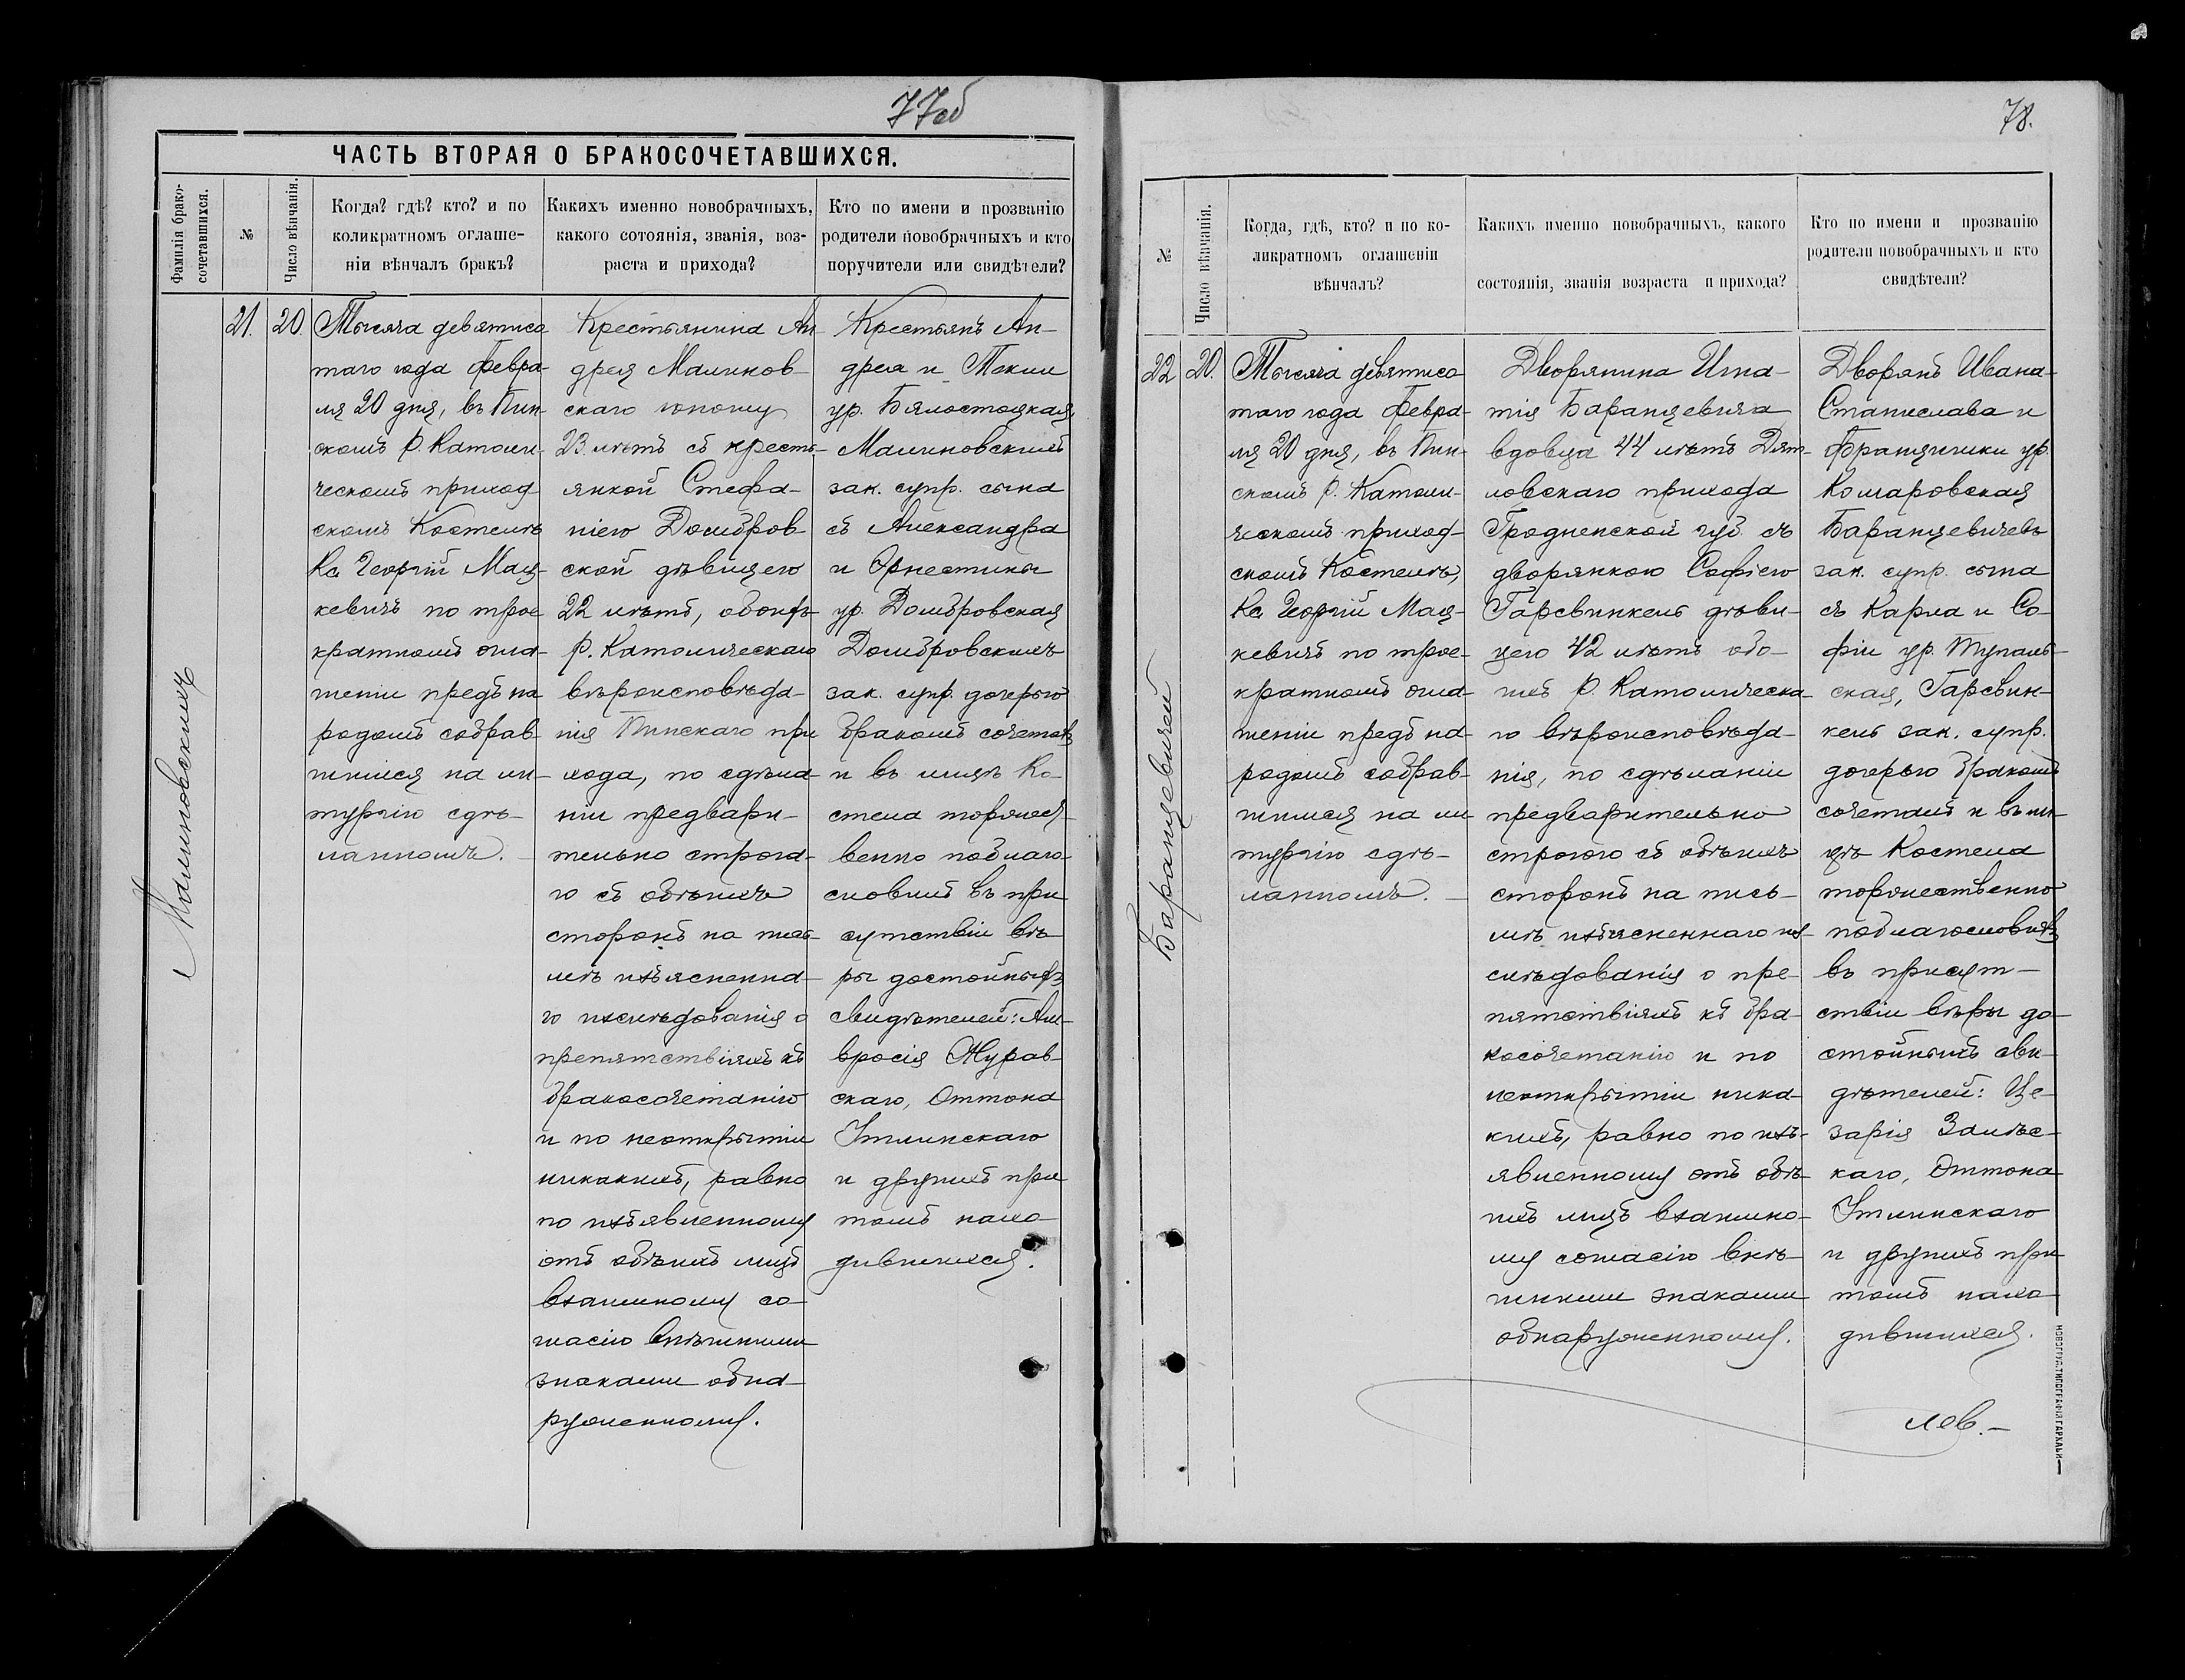 77об
ЧАСТЬ ВТОРАЯ О БРАКОСОЧЕТАВШИХСЯ.
Фамилія брако-
сочетавшихся.
№
Число вѣнчанія.
Когда? гдѣ? кто? и по
коликратномъ оглаше-
ніи вѣнчалъ бракъ?
Какихъ именно новобрачныхъ,
какого сотоянія, званія, воз-
раста и прихода?
Кто по имени и прозванію
родители новобрачныхъ и кто
поручители или свидѣтели?
Малиновскихъ
21.
20.
Тысяча девятисо
таго года Февра-
ля 20 дня, въ Пин-
скомъ Р. Католи-
ческомъ приход
скомъ Костелѣ
Кс. Георгій Мац-
кевичъ по трое
кратномъ огла-
шеніи предъ на
родомъ собрав-
шимся на ли-
тургію сдѣ-
ланномъ.
Крестьянина Ан
дрея Малинов-
скаго юношу
23 лѣтъ съ кресть-
янкой Стефа-
ніею Домбров-
ской дѣвицею
22 лѣтъ, обоихъ
Р. Католическаго
вѣроисповѣда-
нія Пинскаго при
хода, по сдѣла-
ніи предвари-
тельно строга-
го съ обѣихъ
сторонъ на пись-
мѣ изъясненна-
го изслѣдованія о
препятствіяхъ къ
бракосочетанію
и по неоткрытіи
никакихъ, равно
по изъявленному
отъ обѣихъ лицъ
взаимному со-
гласію внѣшними
знаками обна-
руженному.
Крестьянъ Ан-
дрея и Текли
ур. Бялостоцкая
Малиновскихъ
зак. супр. сына
съ Александра
и Эрнестины
ур. Домбровская
Домбровскихъ
зак. супр. дочерью
бракомъ сочеталъ
и въ лицѣ Ко-
стела торжест-
венно поблаго-
словилъ въ при
сутствіи вѣ-
ры достойныхъ
свидѣтелей: Ам-
вросія Журав-
скаго, Оттона
Ительинскаго
и другихъ при
томъ нахо-
дившихся.
78.
№
Число вѣнчанія.
Когда, гдѣ, кто? и по ко-
ликратномъ оглашеніи
вѣнчалъ?
Какихъ именно новобрачныхъ, какого
состоянія, званія возраста и прихода?
Кто по имени и прозванію
родители новобрачныхъ и кто
свидѣтели?
Баранцевичей
22
20.
Тысяча девятисо
таго года Февра-
ля 20 дня, въ Пин-
скомъ Р. Католи-
ческомъ приход-
скомъ Костелѣ,
Кс. Георгій Мац-
кевичъ по трое-
кратномъ огла-
шеніи предъ на-
родомъ собрав-
шимся на ли
тургію сдѣ-
ланномъ.
Дворянина Игна-
тія Баранцевича
вдовца 44 лѣтъ Дят-
ловскаго прихода
Гродненской губ. съ
дворянкою Софіею
Гарсвинкель дѣви-
цею 42 лѣтъ обо-
ихъ Р. Католическа-
го вѣроисповѣда-
нія, по сдѣланіи
предварительно
строгого съ обѣихъ
сторонъ на пись-
мѣ изъясненнаго из-
слѣдованія о пре-
пятствіяхъ къ бра
косочетанію и по
неоткрытіи ника-
кихъ, равно по изъ-
явленному отъ обѣ-
ихъ лицъ взаимно-
му согласію внѣ-
шними знаками
обнаруженному.
Дворянъ Ивана-
Станислава и
Францишки ур.
Комаровская
Баранцевичевъ
зак. супр. сына
съ Карла и Со-
фіи ур. Тупаль-
ская, Гарсвин-
кель зак. супр.
дочерью бракомъ
сочеталъ и въ ли-
цѣ Костела
торжественно
поблагословилъ
въ присут-
ствіи вѣры до-
стойныхъ сви-
дѣтелей: Це-
зарія Залѣс-
каго, Оттона
Ительинскаго
и другихъ при
томъ нахо-
дившихся.
НОВОГРУД. ТИПОГРАФІЯ ГАРКАВИ